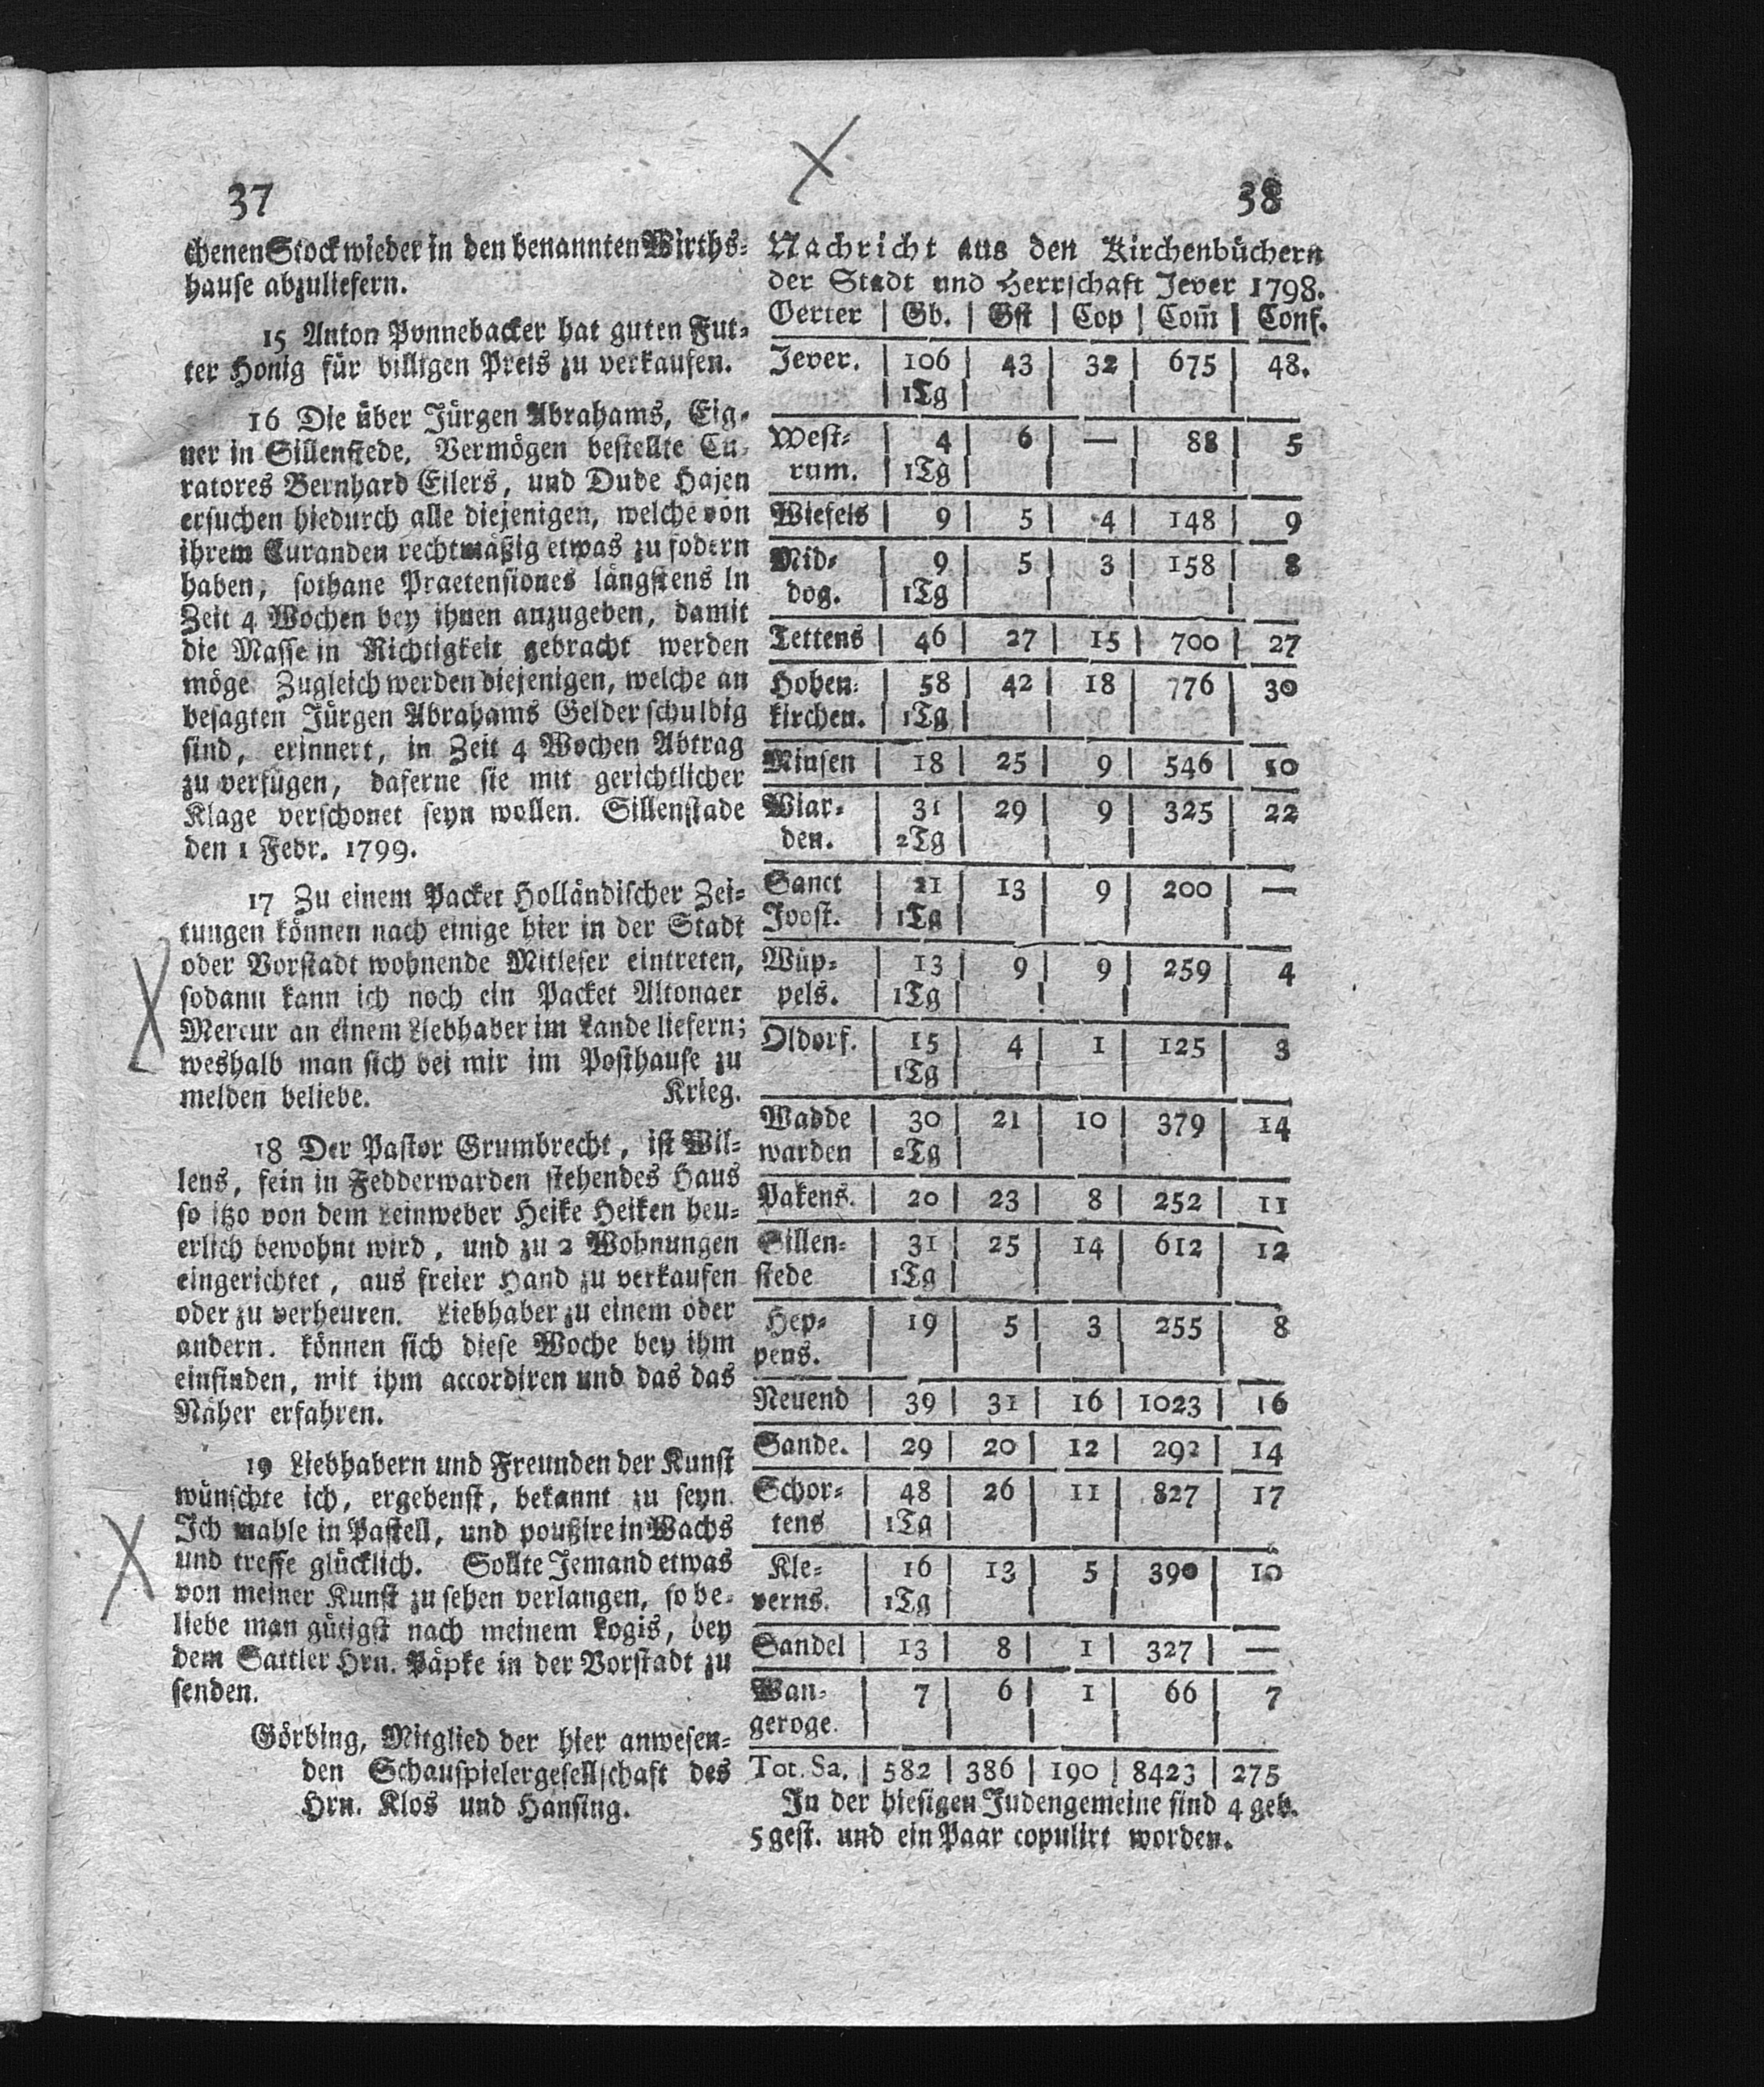 37
chenen Stock wieder in den benannten Wirths-
hause abzuliefern.
15 Anton Ponnebacker hat guten Fut-
ter Honig für billigen Preis zu verkaufen.
16 Die über Jürgen Abrahams, Eig-
ner in Sillenstede, Vermögen bestellte Cu-
ratores Bernhard Eilers, und Dude Hajen
ersuchen hiedurch alle diejenigen, welche von
ihrem Curanden rechtmäßig etwas zu fodern
haben, sothane Praetensiones längstens in
Zeit 4 Wochen bey ihnen anzugeben, damit
die Masse in Richtigkeit gebracht werden
möge Zugleich werden diejenigen, welche an
besagten Jürgen Abrahams Gelder schuldig
sind, erinnert, in Zeit 4 Wochen Abtrag
zu verfügen, daferne sie mit gerichtlicher
Klage verschonet seyn wollen. Sillenstade
den 1 Febr. 1799.
17 Zu einem Packet Holländischer Zei-
tungen können nach einige hier in der Stadt
oder Vorstadt wohnende Mitleser eintreten,
sodann kann ich noch ein Packet Altonaer
Mercur an einem Liebhaber im Lande liefern;
weshalb man sich bei mir im Posthause zu
melden beliebe. Krieg.
18 Der Pastor Grumbrecht, ist Wil-
lens, sein in Fedderwarden stehendes Haus
so itzo von dem Leinweber Heike Heiken heu-
erlich bewohnt wird, und zu 2 Wohnungen
eingerichtet, aus freier Hand zu verkaufen
oder zu verheuren. Liebhaber zu einem oder
andern. können sich diese Woche bey ihm
einfinden, mit ihm accordiren und das das
Näher erfahren.
19 Liebhabern und Freunden der Kunst
wünschte ich, ergebenst, bekannt zu seyn
Ich mahle in Pastell, und poußire in Wachs
und treffe glücklich. Sollte Jemand etwas
von meiner Kunst zu sehen verlangen, so be-
liebe man gütigst nach meinem Logis, bey
dem Sattler Hrn. Päpke in der Vorstadt zu
senden.
Görbing, Mitglied der hier anwesen-
den Schauspielergesellschaft des
Hrn. Klos und Hansing.
38
Nachricht aus den Kirchenbüchern
der Stadt und Herrschaft Jever 1798.
Oerter | Gb. | Gst | Cop | Com̄ | Conf.
Jever. | 106 | 43 | 32 | 675 | 48.
| 1Tg | | | |
West- | 4 | 6 | — | 88 | 5
rum. | 1Tg | | | |
Wiefels | 9 | 5 | 4 | 148 | 9
Mid- | 9 | 5 | 3 | 158 | 8
dog. | 1Tg | | | |
Tettens | 46 | 27 | 15 | 700 | 27
Hohen- | 58 | 42 | 18 | 776 | 30
kirchen. | 1Tg | | | |
Minsen | 18 | 25 | 9 | 546 | 10
Wiar- | 31 | 29 | 9 | 325 | 22
den. | 2Tg | | | |
Sanct | 21 | 13 | 9 | 200 | —
Joost. | 1Tg | | | |
Wüp- | 13 | 9 | 9 | 259 | 4
pels. | 1Tg | | | |
Oldorf. | 15 | 4 | 1 | 125 | 3
| 1Tg | | | |
Wadde | 30 | 21 | 10 | 379 | 14
warden | 2Tg | | | |
Pakens. | 20 | 23 | 8 | 252 | 11
Sillen- | 31 | 25 | 14 | 612 | 12
stede | 1Tg | | | |
Hep- | 19 | 5 | 3 | 255 | 8
pens. | | | | |
Neuend | 39 | 31 | 16 | 1023 | 16
Sande. | 29 | 20 | 12 | 292 | 14
Schor- | 48 | 26 | 11 | 827 | 17
tens | 1Tg | | | |
Kle- | 16 | 13 | 5 | 390 | 10
verns. | 1Tg | | | |
Sandel | 13 | 8 | 1 | 327 | —
Wan- | 7 | 6 | 1 | 66 | 7
geroge. | | | | |
Tot. Sa. | 582 | 386 | 190 | 8423 | 275
In der hiesigen Judengemeine sind 4 geb.
5 gest. und ein Paar copulirt worden.